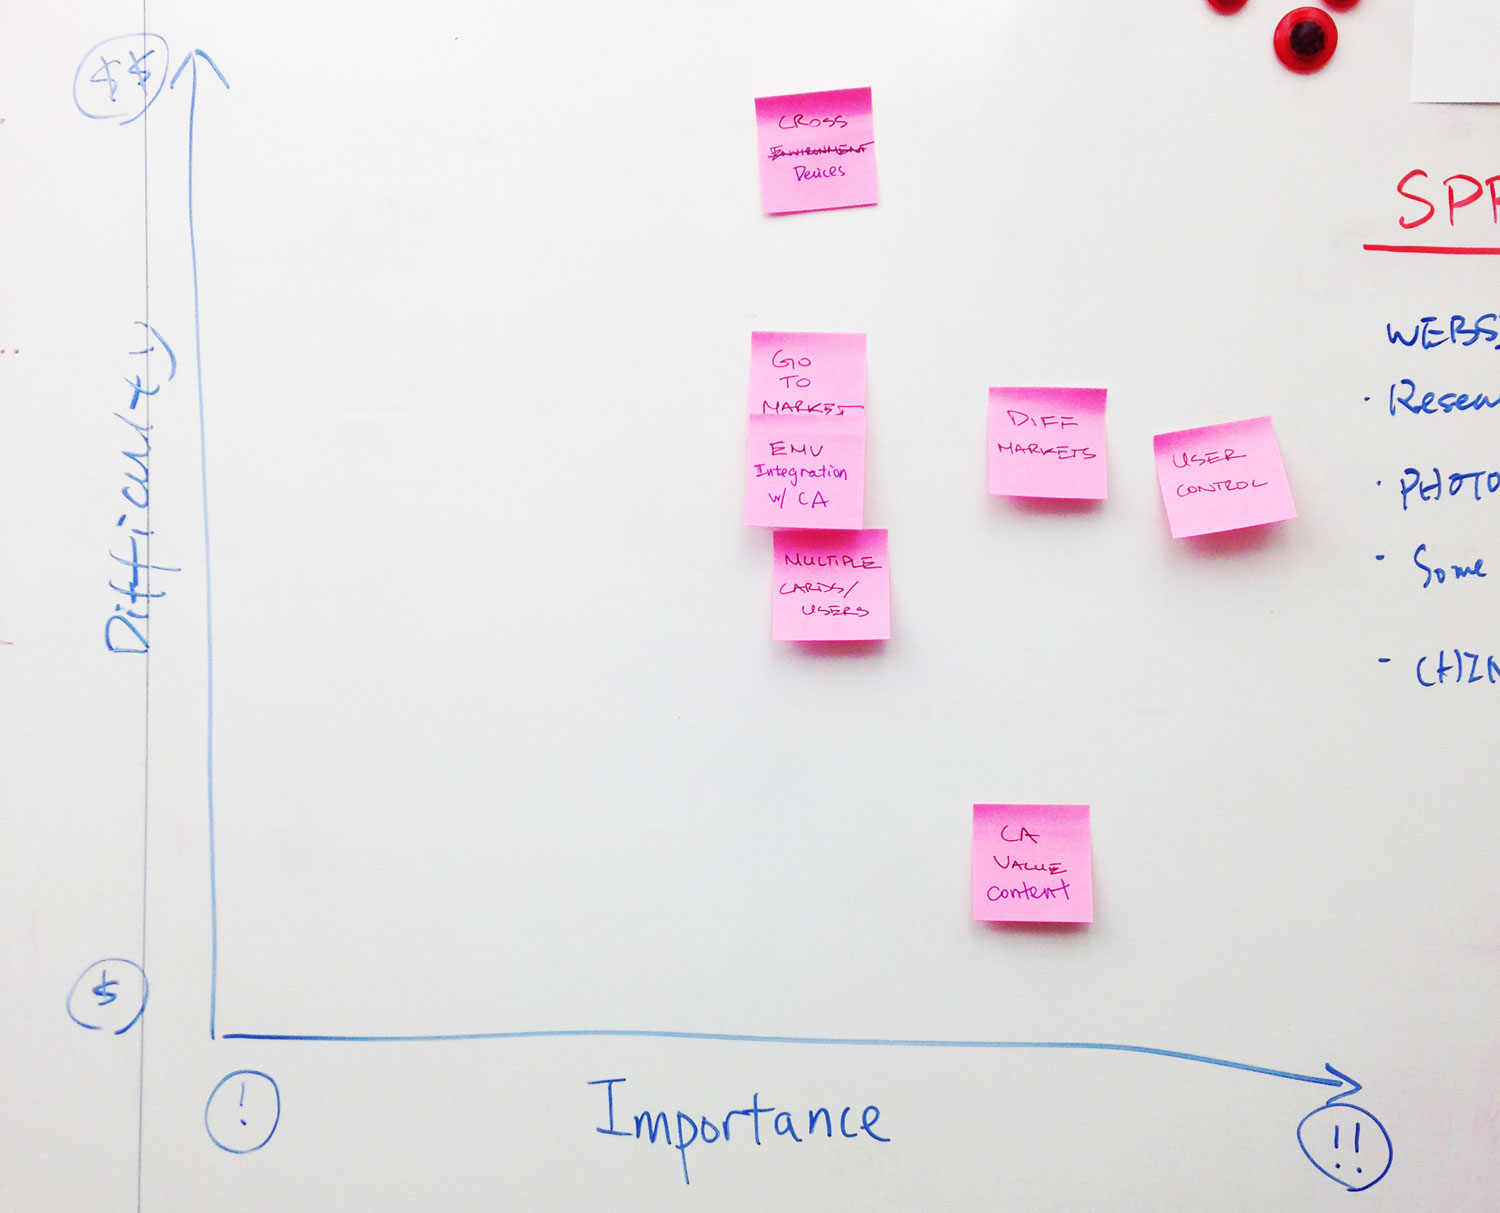 $$
Difficulty
$
!
Importance
!!
CROSS
ENVIRONMENT
Devices
GO
TO
MARKET
EMV
Integration
w/ CA
MULTIPLE
CARDS/
USERS
DIFF
MARKETS
USER
CONTROL
CA
VALUE
content
SPR
WEBS
· Resea
· PHOTO
- Some
- CHIN